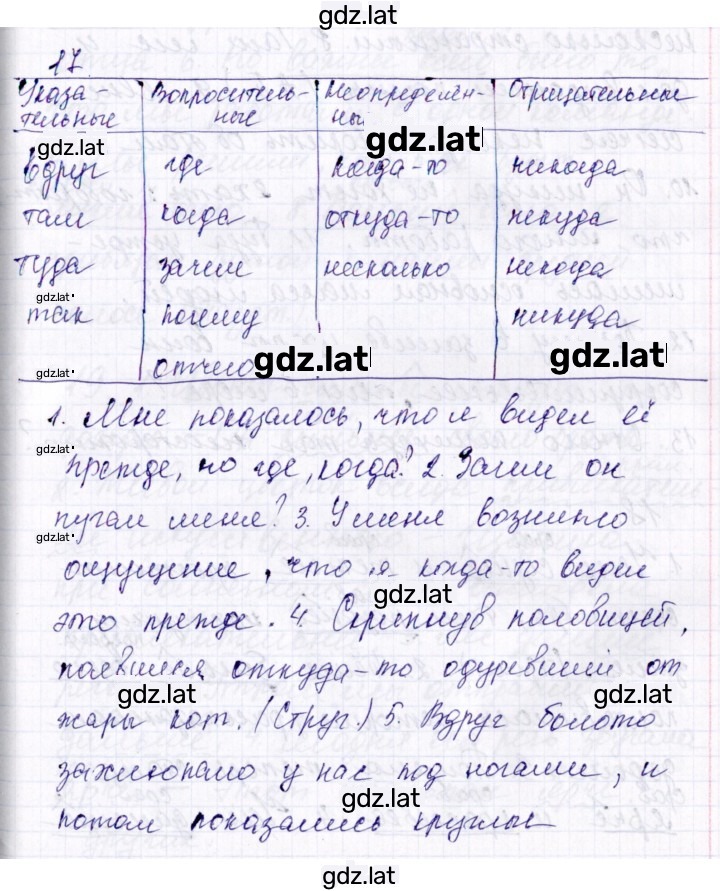 gdz.lat
17.
Указа- Вопроситель- Неопределен- Отрицательные
тельные ные ны
gdz.lat
gdz.lat
вдруг где когда-то никогда
там когда откуда-то некуда
туда зачем несколько некогда
gdz.lat
так почему никуда
отчего gdz.lat gdz.lat
gdz.lat
1. Мне показалось, что я видел её
gdz.lat
прежде, но где, когда? 2. Зачем он
пугал меня? 3. У меня возникло
gdz.lat
ощущение, что я когда-то видел
gdz.lat
это прежде. 4. Скрипнув половицей,
появился откуда-то одуревший от
gdz.lat gdz.lat
жары кот. (Струг.) 5. Вдруг болото
захлюпало у нас под ногами, и
gdz.lat
потом показались круглые
gdz.lat